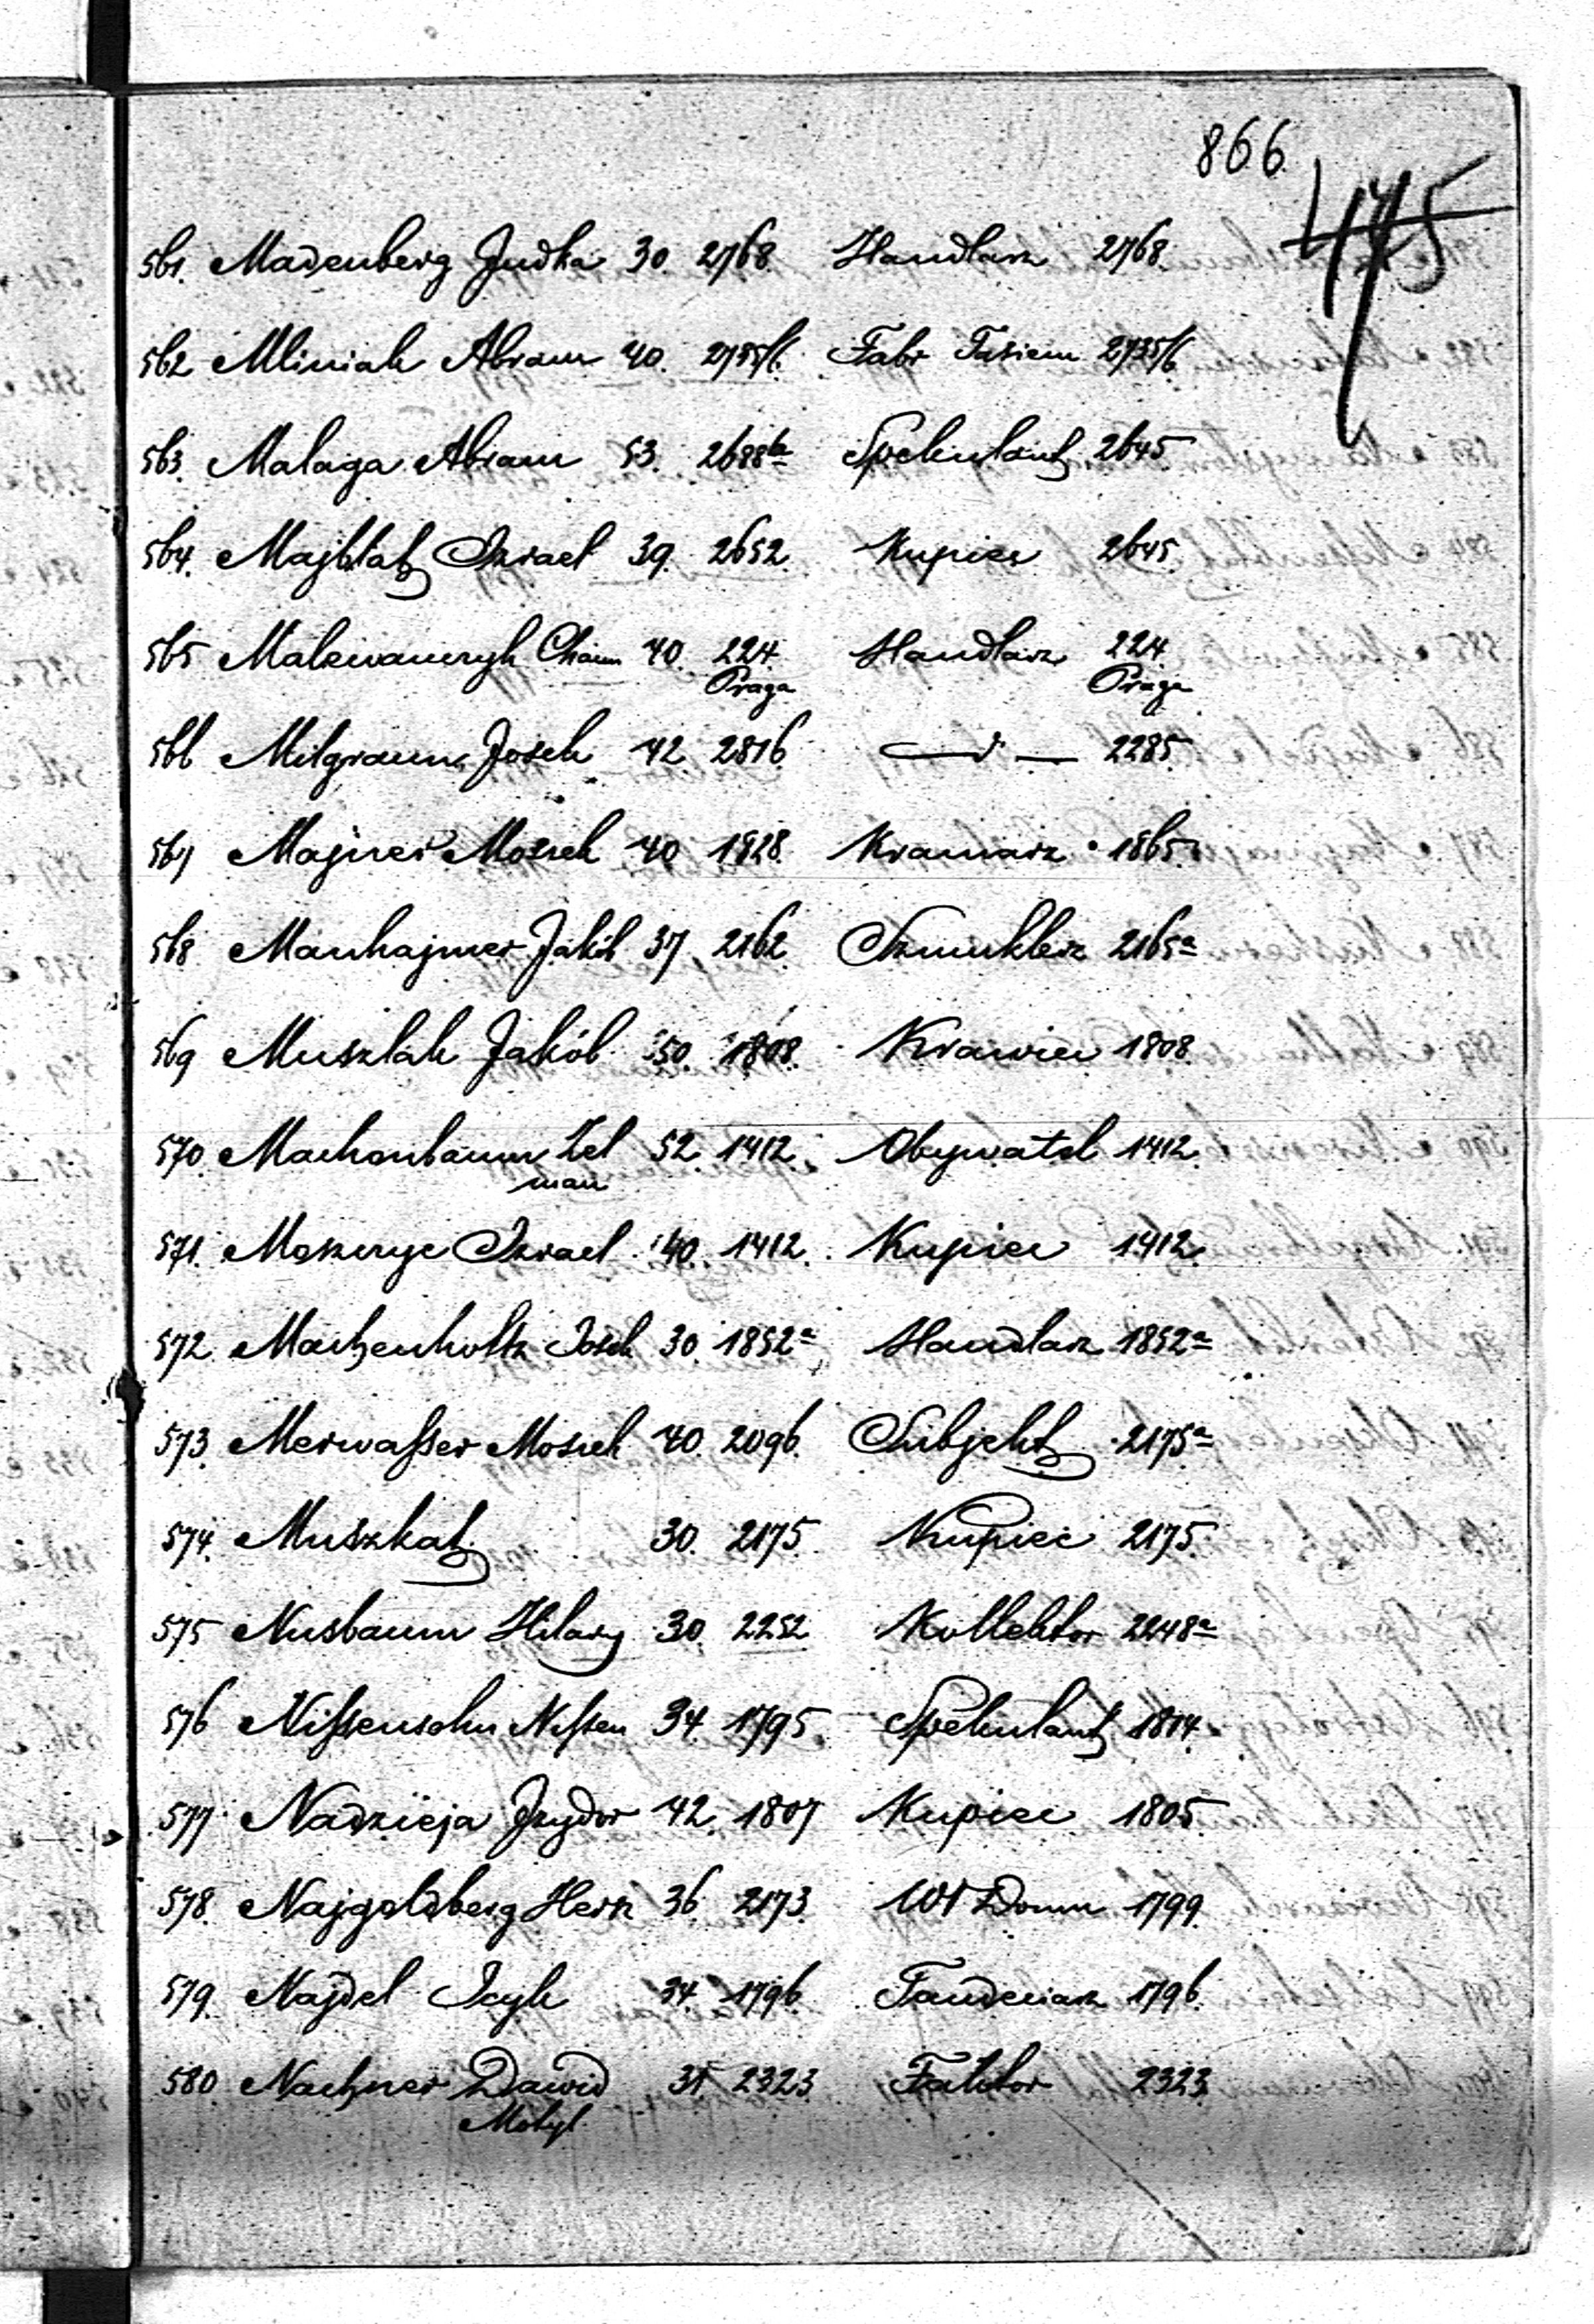 866
475
561. Madenberg Judka 30. 2768. Handlarz 2768.
562 Mliniak Abram 40. 2735/6. Fabr Tasiem 2735/6.
563. Malaga Abram 53. 2688b Spekulant 2645
564. Majblat Izrael 39. 2652. Kupiec 2645.
565 Malewanczyk Chaim 40. 224. Handlarz 224
Praga Praga
566 Milgraum Josek 42. 2816. —d— 2285.
567 Majner Moszek 40 1928. Kramarz 1865.
568 Manhajmer Jakób 37. 2162. Szmuklerz 2165a
569 Muszlak Jakób 50. 1808. Krawiec 1808
570. Machonbaum Zel 52. 1412. Obywatel 1412.
man
571. Moszczyc Izrael 40. 1412. Kupiec 1412.
572. Machenholtz Josek 30. 1852a Handlarz 1852a
573. Merwasser Moszek 40. 2096. Subjekt 2175a
574. Muszkat 30. 2175. Kupiec 2175.
575 Nusbaum Hilary 30. 2252 Kollektor 2248a
576 Nissensohn Nissen 34. 1795. Spekulant 1814.
577. Nadzieja Izydor 42. 1807 Kupiec 1805.
578. Najgoldberg Herz 36. 2173. Wł Domu 1799.
579. Najdel Icyk 34. 1796. Tandeciarz 1796.
580 Nachner Dawid 31. 2323 Faktor 2323.
Motyl